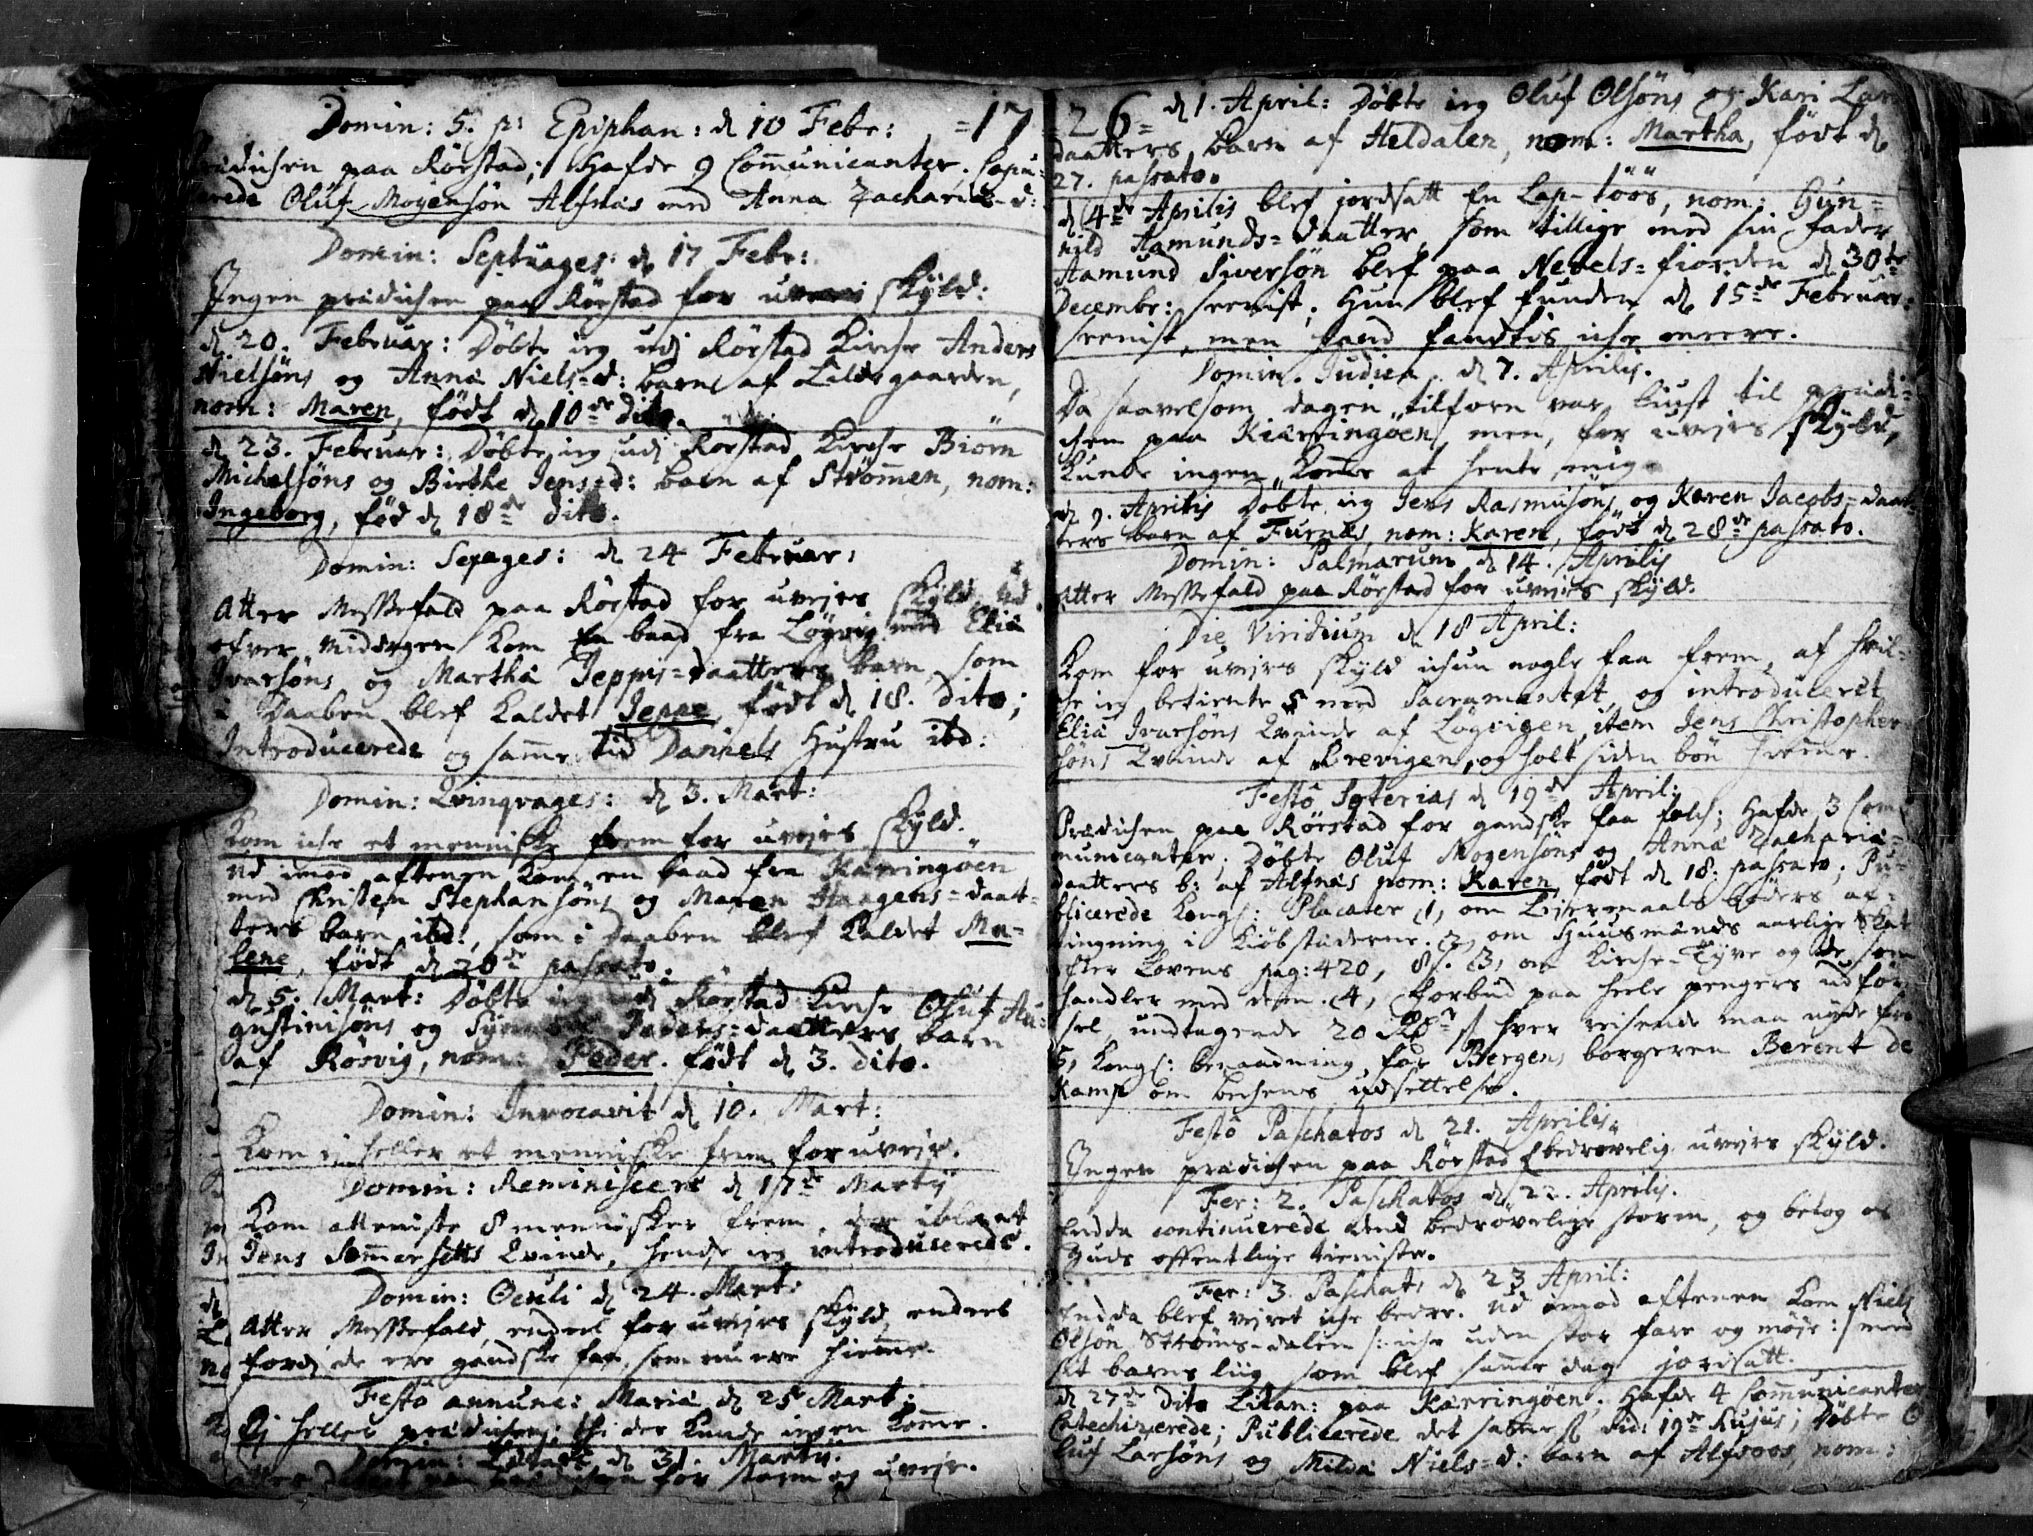 Domin: 5. p: Epiphan: d 10 Febr: =17
prædichen paa Rörstad; Hafde 9 Communicanter. Copu-
lerede Oluf Mogensön Alfnæs med Anna Zachariæ-d:
Domin: Septuages: d 17 Febr:
Ingen prædichen paa Rörstad for uvejrs skyld:
d 20. Februar: Döbte ieg udj Rörstad Kirche Anders
Nielsöns og Anna Niels=d: barn af Lildegaarden,
nom: Maren, födt d 10de dito.
d 23. Februar: Döbte ieg udj Rörstad Kirche Biörn
Michelsöns og Birthe Jens=d: barn af Strömmen, nom:
Ingeborg, föd d 18de dito.
Domin: Sexages: d 24 Februar:
Atter Messefald paa Rörstad for uvejrs skyld. Ud
ofver middagen kom En baad fra Lögvig med Eliæ
Ivarsöns og Martha Jeppis=daatters barn, som
i Daaben blef kaldet Jeppe, födt d 18. dito;
Introducerede og samme tid Daniels Hustru ibd:
Domin: Qvinqvages: d 3. Mart:
Kom iche et menniske frem for uvejrs skyld.
Ud imod aftenen kom en baad fra Kærringöen
med Christen Stephansöns og Maren Haagens=daat-
ters barn ibd:, som i Daaben blef kaldet Ma-
lene, födt d 20de passato.
d 5. Mart: Döbte ieg udj Rörstad Kirche Oluf Au-
gustinisöns og Peders=daatters barn
af Rösvig, nom: Peder. födt d 3. dito.
Domin: Invocavit d 10. Mart:
Kom ej heller et menniske frem for uvejr.
Domin: Reminiscere d 17de Martij
Kom atteniste 8 mennisker frem, der iblant
Jens Sommersetts Qvinde, hende ieg introducerede.
Domin: Oculi d 24. Mart:
Atter Messefald, endeel for uvejrs skyld, endeel
fordj de ere gandske faa som nu ere hiemme.
Festo annunc: Mariæ d 25 Mart:
Ej heller prædichen; thi der kunde ingen komme.
Domin: Lætare d 31. Martij.
for storm og uvejr.
=26= d 1. April: Döbte ieg Oluf Olsöns og Kari Lars
daatters barn af Heldalen, nom: Martha, födt d
27. passato.
d 4de Aprilis blef jordsatt En Lap-töös, nom: Gun=
nild Aamunds=daatter, som tillige med sin fader
Aamund Siversön blef paa Nevels=fiorden d 30te
Decembr: seenist; Hun blef funden d 15de Februar:
seenist, men hand fandtis iche meere.
Domin. Judica d 7. Aprilis.
Da saavelsom dagen tilforn var liust til prædi-
chen paa Kiærringöen, men, for uvejrs skyld,
kunde ingen komme at hente mig.
d 9. Aprilis Döbte ieg Jens Rasmusöns og Karen Jacobs=daat
ters barn af Furnæs, nom: Karen, födt d 28de passato.
Domin: Palmarum d 14. Aprilis
Atter Messefald paa Rörstad for uvejrs skyld.
Die Viridium d 18 April:
Kom for uvejrs skyld ichun nogle faa frem, af hvil-
che ieg betiente 5 med Sacramentet, og introduceret
Eliæ Ivarsöns Qvinde af Lögvigen, item Jens Christopher
söns Qvinde af Brevigen, og holt siden bön hiemme.
Festo Soterias d 19de April:
Prædichen paa Rörstad for gandske faa folch; Hafde 3 Com-
municanter; Döbte Oluf Mogensöns og Anna Zachariæ-
daatters b: af Alfnæs nom: Karen, födt d 18. passato; Pu-
blicerede Kongl: Placater (1, om Leiermaals böders af-
tingning i Kiöbstæderne. 2, om Huusmænds aarlige Skat
efter Lovens pag: 420, 8. 3, om Kirche-Tyve og de som
handler med dem. 4, Forbud paa heele pengers udför
sel, undtagende 20 Rdr hver reisende maa nyde frj
5, Kongl: benaadning for Bergens borgeren Berent de
Kamp om bechens udsettelse.
Festo Paschatos d 21. Aprilis.
Ingen prædichen paa Rörstad bedrövelig uvejrs skyld.
Fer: 2. Paschatos d 22. Aprilis.
Endda continuerede dend bedrövelige storm, og betog os
Guds offentlige tieniste.
Fer: 3. Paschat: d 23 April:
Endda blef vejret iche bedre. Ud imod aftenen kom Niels
Olsön Ströms-dalen /: iche uden stor fare og möje :/ med
sit barns liig, som blef samme dag jordsatt.
d 27de dito Litan: paa Kærringöen. Hafde 4 Communicanter
Catechizerede; Publicerede det samme som Did: 19de hujus; Döbte O
luf Larsöns og Milda Niels=d: barn af Alfsoos, nom: